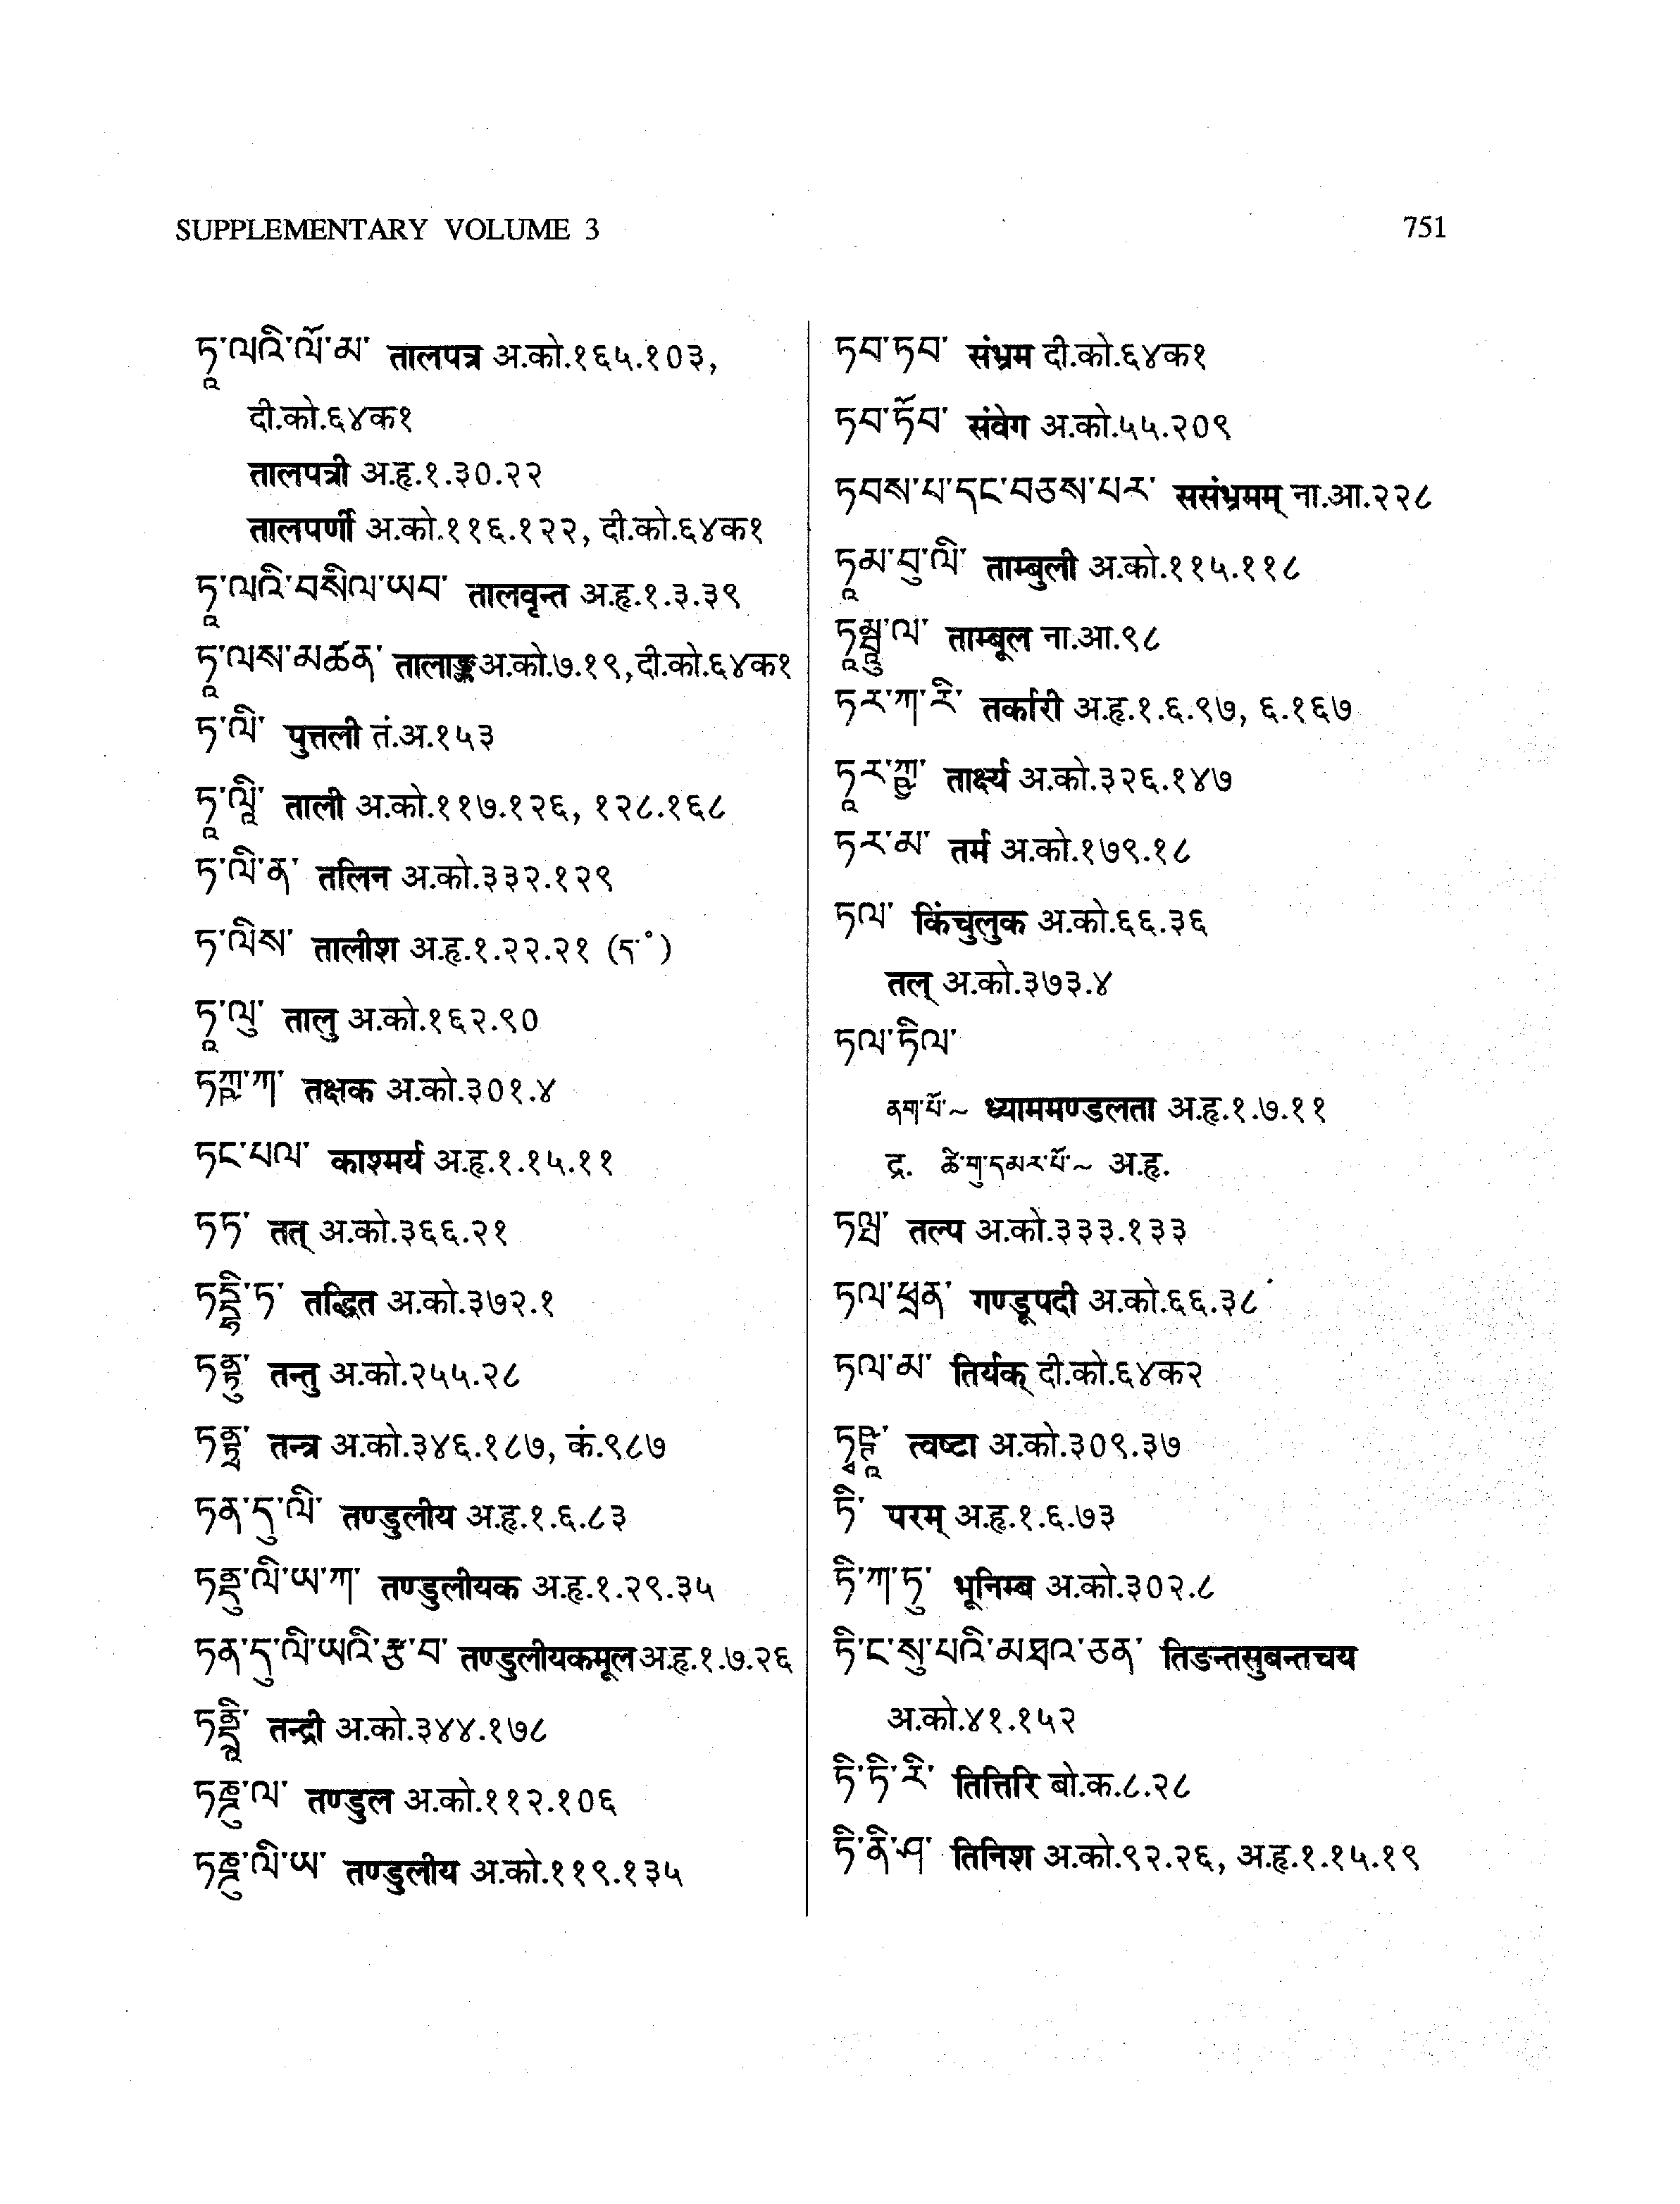 SUPPLEMENTARY VOLUME 3
751
ཏཱ་ལའི་ལོ་མ་ तालपत्र अ.को.१६५.१०३,
दी.को.६४क१
तालपत्री अ.हृ.१.३०.२२
तालपर्णी अ.को.११६.१२२, दी.को.६४क१
ཏཱ་ལའི་བསིལ་ཡབ་ तालवृन्त अ.हृ.१.३.३९
ཏཱ་ལས་མཚན་ तालाङ्क अ.को.७.१९, दी.को.६४क१
ཏ་ལི་ पुत्तली तं.अ.१५३
ཏཱ་ལཱི་ ताली अ.को.११७.१२६, १२८.१६८
ཏ་ལི་ན་ तलिन अ.को.३३२.१२९
ཏ་ལིས་ तालीश अ.हृ.१.२२.२१ (ད་॰)
ཏཱ་ལུ་ तालु अ.को.१६२.९०
ཏཀྵ་ཀ་ तक्षक अ.को.३०१.४
ཏང་པལ་ काश्मर्य अ.हृ.१.१५.११
ཏཏ་ तत् अ.को.३६६.२१
ཏདྡྷི་ཏ་ तद्धित अ.को.३७२.१
ཏནྟུ་ तन्तु अ.को.२५५.२८
ཏནྟྲ་ तन्त्र अ.को.३४६.१८७, कं.९८७
ཏན་དུ་ལི་ तण्डुलीय अ.हृ.१.६.८३
ཏནྡུ་ལི་ཡ་ཀ་ तण्डुलीयक अ.हृ.१.२९.३५
ཏན་དུ་ལི་ཡའི་རྩ་བ་ तण्डुलीयकमूल अ.हृ.१.७.२६
ཏནྡྲཱི་ तन्द्री अ.को.३४४.१७८
ཏཎྜུ་ལ་ तण्डुल अ.को.११२.१०६
ཏཎྜུ་ལི་ཡ་ तण्डुलीय अ.को.११९.१३५
ཏབ་ཏབ་ संभ्रम दी.को.६४क१
ཏབ་ཏོབ་ संवेग अ.को.५५.२०९
ཏབས་པ་དང་བཅས་པར་ ससंभ्रमम् ना.आ.२२८
ཏཱམ་བུ་ལི་ ताम्बुली अ.को.११५.११८
ཏཱམྦཱུ་ལ་ ताम्बूल ना.आ.९८
ཏར་ཀ་རི་ तर्कारी अ.हृ.१.६.९७, ६.१६७
ཏཱར་ཀྵྱ་ तार्क्ष्य अ.को.३२६.१४७
ཏར་མ་ तर्म अ.को.१७९.१८
ཏལ་ किंचुलुक अ.को.६६.३६
तल् अ.को.३७३.४
ཏལ་ཏིལ་
ནག་པོ་~ ध्याममण्डलता अ.हृ.१.७.११
द्र. ཚི་གུ་དམར་པོ་~ अ.हृ.
ཏལྤ་ तल्प अ.को.३३३.१३३
ཏལ་ཕྲན་ गण्डूपदी अ.को.६६.३८
ཏལ་མ་ तिर्यक् दी.को.६४क२
ཏྭཥྚཱ་ त्वष्टा अ.को.३०९.३७
ཏི་ परम् अ.हृ.१.६.७३
ཏི་ཀ་ཏུ་ भूनिम्ब अ.को.३०२.८
ཏི་ང་སུ་པའི་མཐའ་ཅན་ तिङन्तसुबन्तचय
अ.को.४१.१५२
ཏི་ཏི་རི་ तित्तिरि बो.क.८.२८
ཏི་ནི་ཤ་ तिनिश अ.को.९२.२६, अ.हृ.१.१५.१९